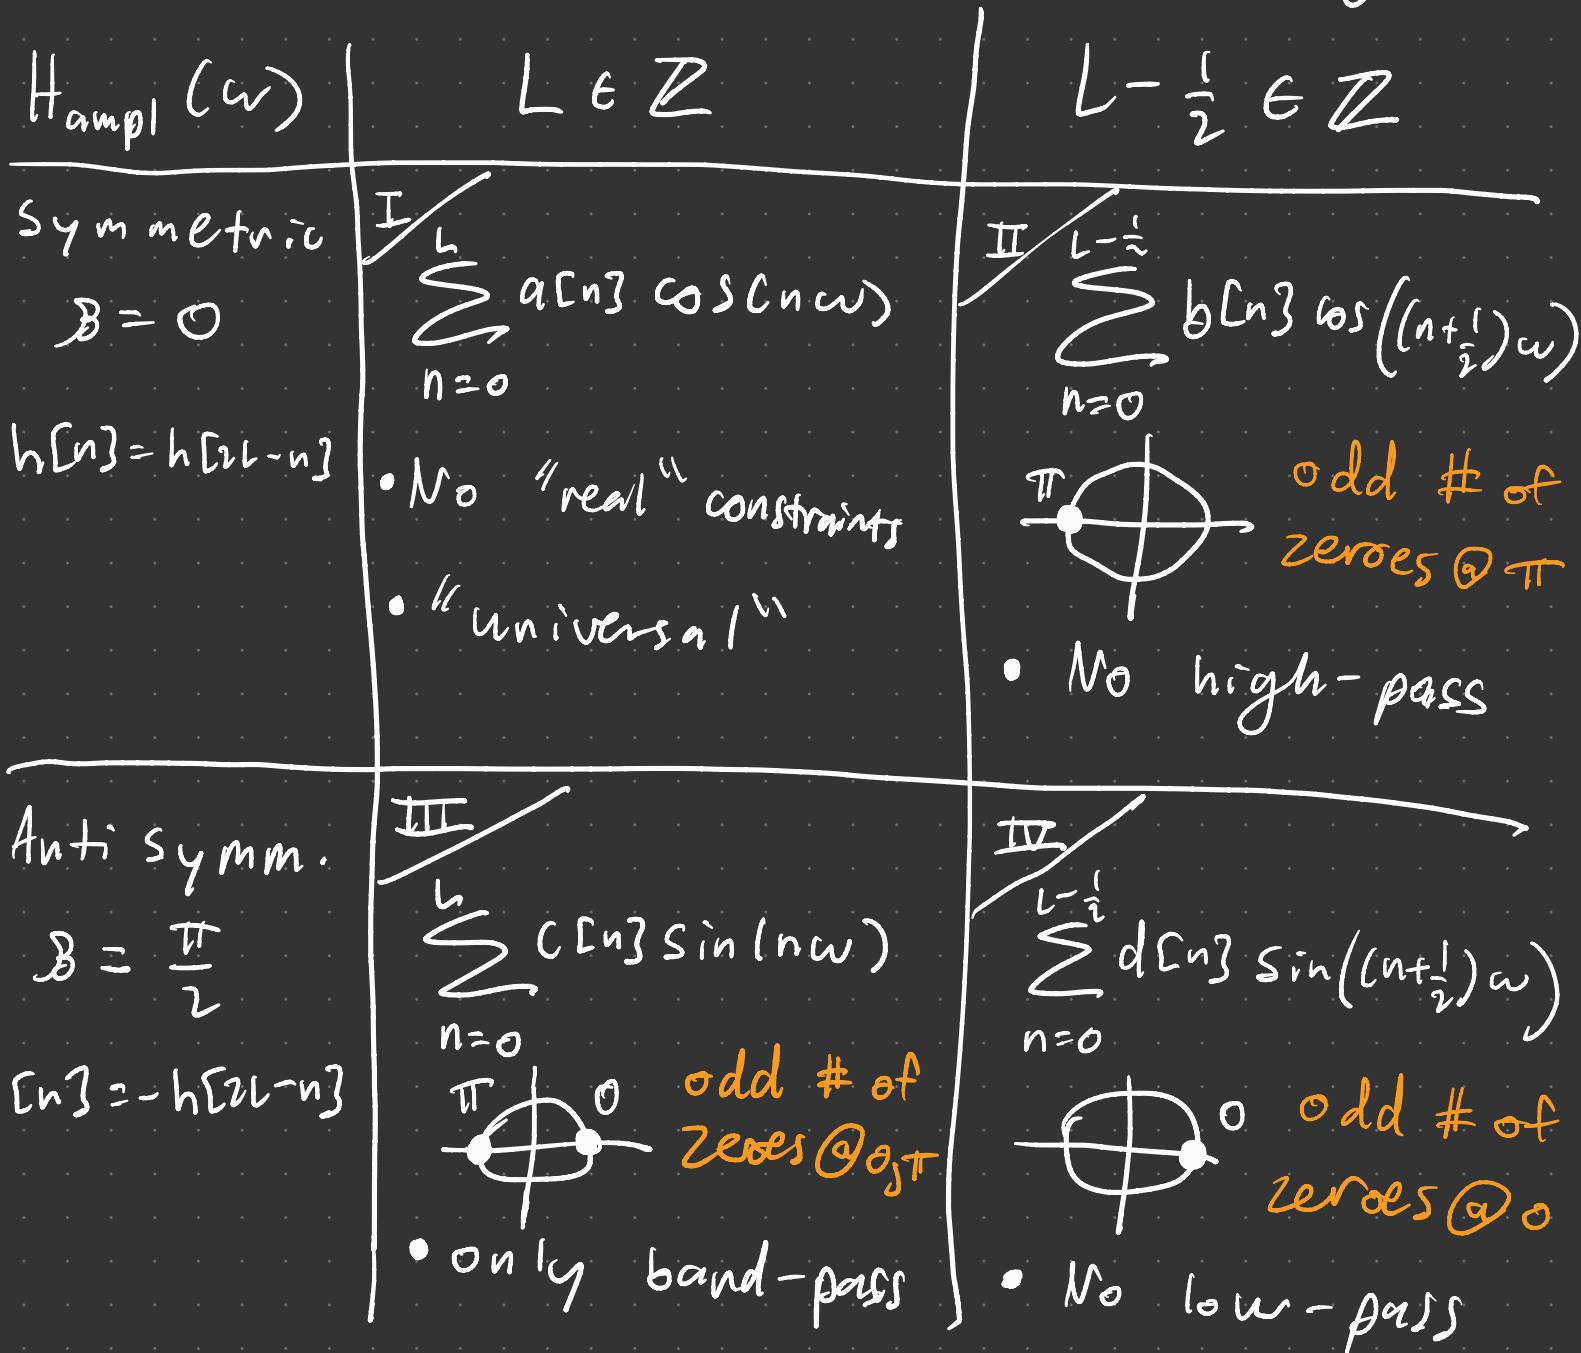 H_ampl (ω)
L ∈ ℤ
L - 1/2 ∈ ℤ
Symmetric
B = 0
h[n] = h[2L-n]
I
L
∑ a[n] cos(nω)
n=0
• No "real" constraints
• "universal"
II
L-1/2
∑ b[n] cos((n+1/2)ω)
n=0
π
odd # of
zeroes @ π
• No high-pass
Anti symm.
B = π/2
[n] = -h[2L-n]
III
L
∑ c[n] sin(nω)
n=0
π 0
odd # of
zeroes @ 0,π
• only band-pass
IV
L-1/2
∑ d[n] sin((n+1/2)ω)
n=0
0
odd # of
zeroes @ 0
• No low-pass